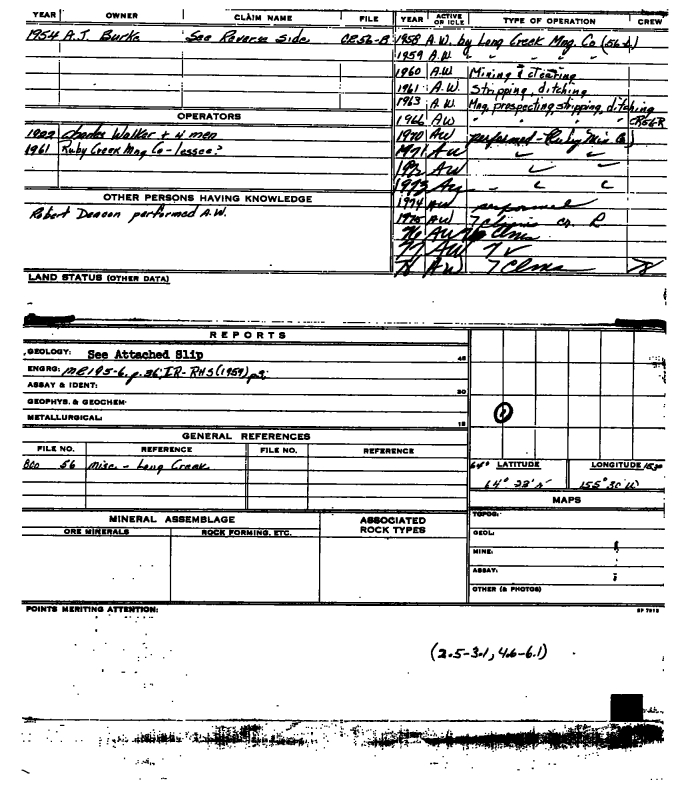 YEAR OWNER CLAIM NAME FILE YEAR ACTIVE OR IDLE TYPE OF OPERATION CREW
1954 A.J. Burks See Reverse Side CR56-B 1958 A.W. by Long Creek Mng. Co (56-A)
1959 A.W. " " " "
1960 A.W Mining & clearing
1961 A.W. Stripping, ditching
1963 A.W. Mng, prospecting, stripping, ditching
OPERATORS
1966 A.W. " " " CR56R
Charles Walker + 4 men
1970 AW performed - Ruby Min Co)
1961 Ruby Creek Mng Co - lessee?
1971 AW
1972 AW
1973
OTHER PERSONS HAVING KNOWLEDGE
1974 AW performed
Robert Deacon performed A.W.
1975 AW 7 claims
76 AW
77 AW 7
78 AW 7 Clms 78
LAND STATUS (OTHER DATA)
REPORTS
GEOLOGY: See Attached Slip 45
ENGRG: MR195-6, p.36; IR-RHS(1959)
ASSAY & IDENT: 30
GEOPHYS. & GEOCHEM:
METALLURGICAL: 15
GENERAL REFERENCES
FILE NO. REFERENCE FILE NO. REFERENCE
56 misc. - Long Creek
64° LATITUDE LONGITUDE 153°
64° 155° 30' W
MAPS
MINERAL ASSEMBLAGE ASSOCIATED ROCK TYPES
ORE MINERALS ROCK FORMING, ETC.
TOPOG:
GEOL:
MINE:
ASSAY:
OTHER (& PHOTOS)
POINTS MERITING ATTENTION:
(2.5-3.1, 4.6-6.1)